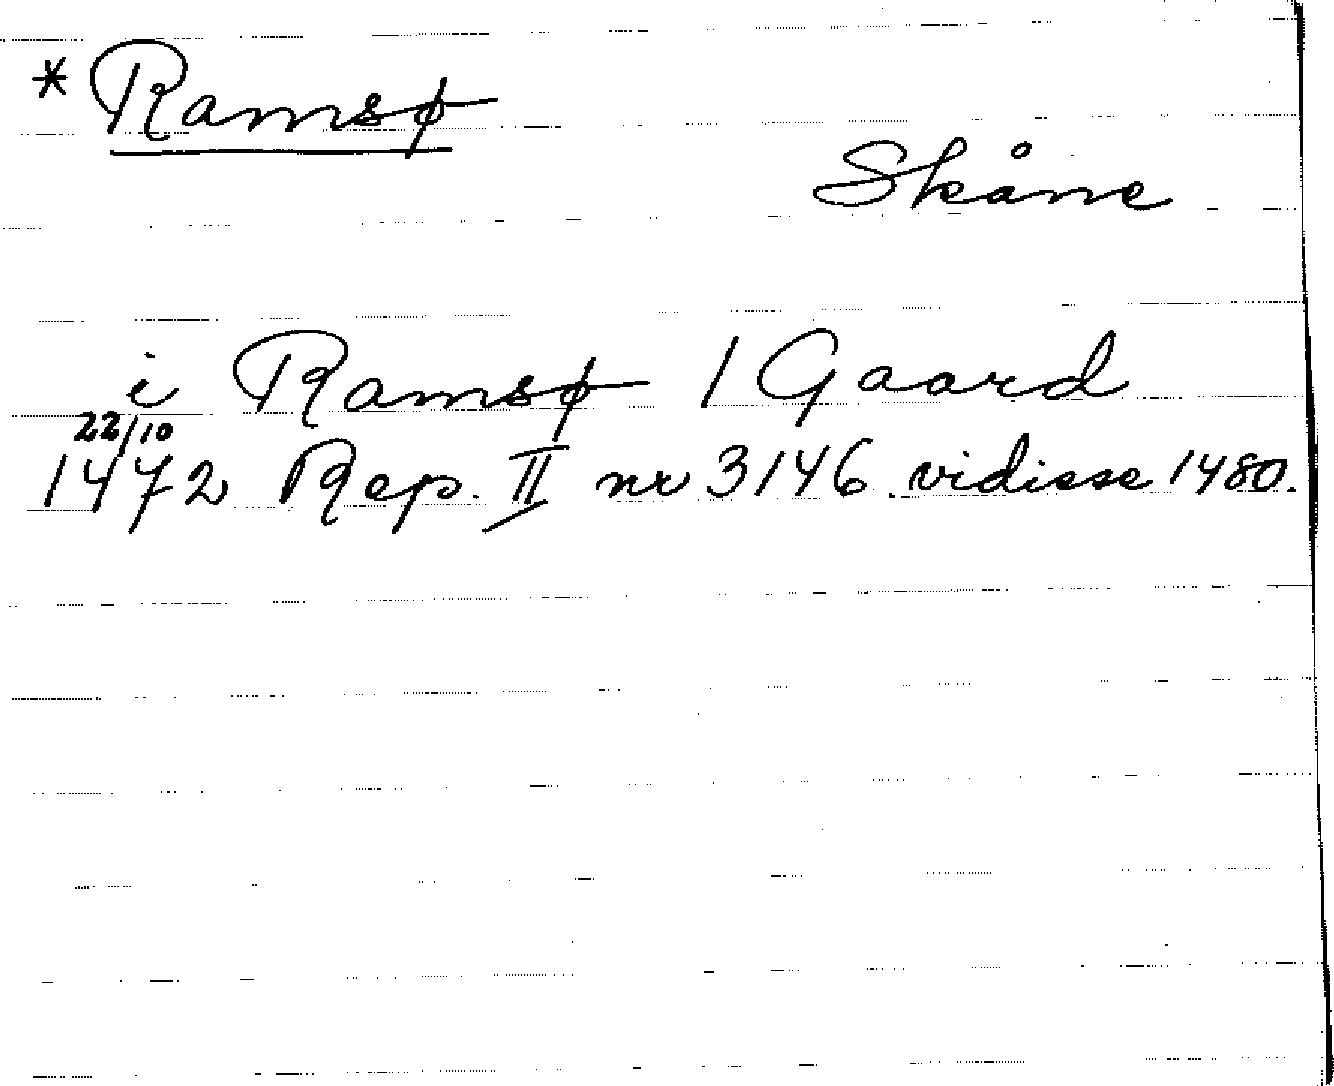 * Ramsø
Skåne
i Ramsø 1 Gaard
22/10
1472 Rep. II nr 3146 vidisse 1480.